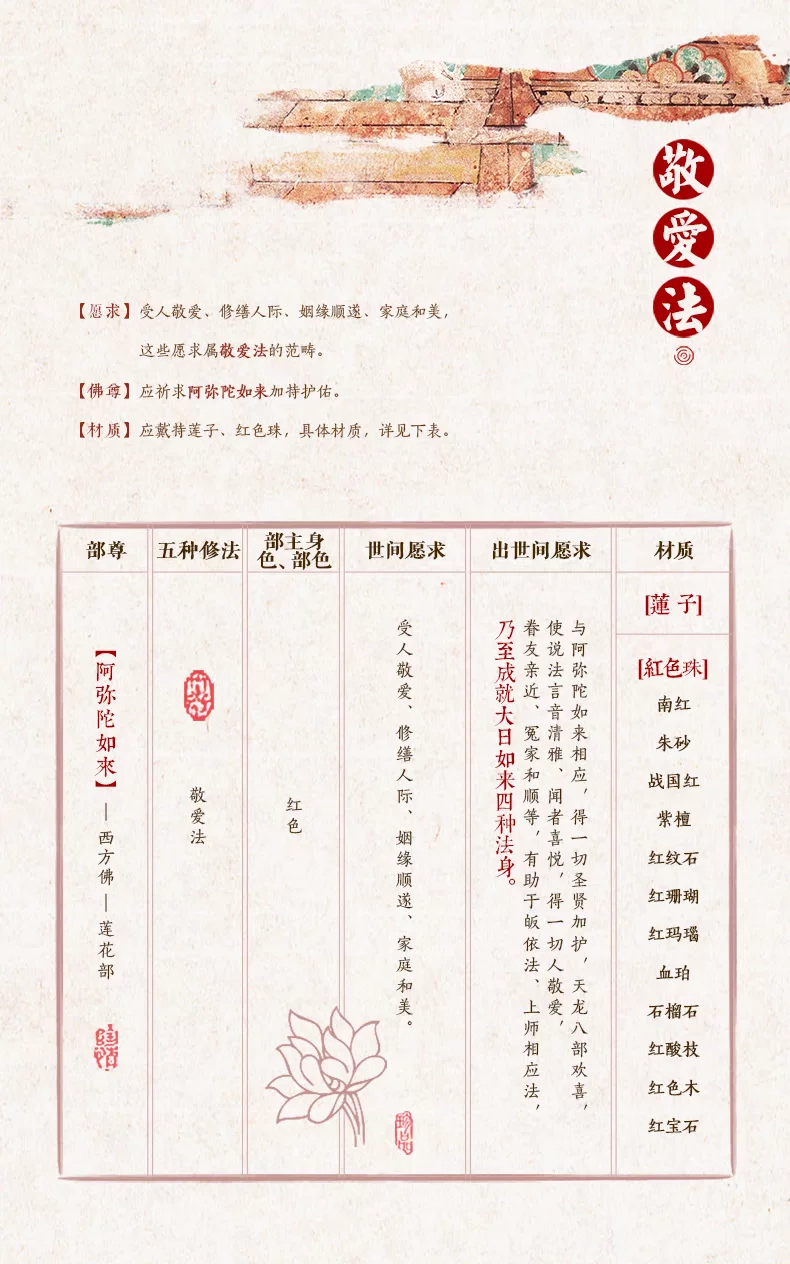 敬愛法
【愿求】受人敬爱、修缮人际、姻缘顺遂、家庭和美，
这些愿求属敬爱法的范畴。
【佛尊】应祈求阿弥陀如来加持护佑。
【材质】应戴持莲子、红色珠，具体材质，详见下表。
部尊
五种修法
部主身
色、部色
世间愿求
出世间愿求
材质
【阿弥陀如來】—西方佛—莲花部
敬爱法
红色
受人敬爱、修缮人际、姻缘顺遂、家庭和美。
与阿弥陀如来相应，得一切圣贤加护，天龙八部欢喜，
使说法言音清雅、闻者喜悦，得一切人敬爱，
眷友亲近、冤家和顺等，有助于皈依法、上师相应法，
乃至成就大日如来四种法身。
[蓮子]
[紅色珠]
南红
朱砂
战国红
紫檀
红纹石
红珊瑚
红玛瑙
血珀
石榴石
红酸枝
红色木
红宝石